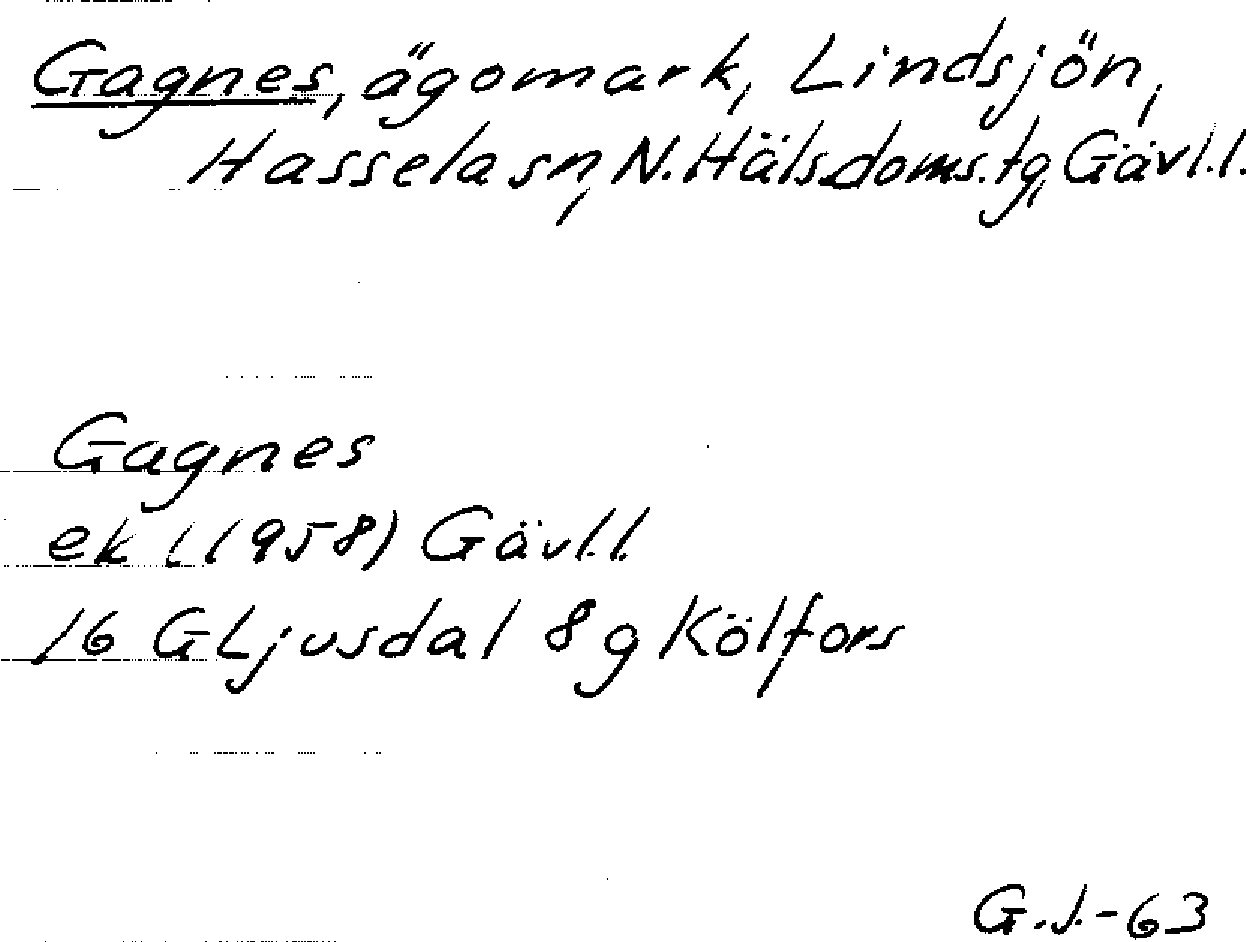 Gagnes, ägomark, Lindsjön,
Hassela sn, N. Häls. doms. tg, Gävl. l.
Gagnes
ek (1958) Gävl. l.
16 G Ljusdal 8 g Kölfors
G.J.-63